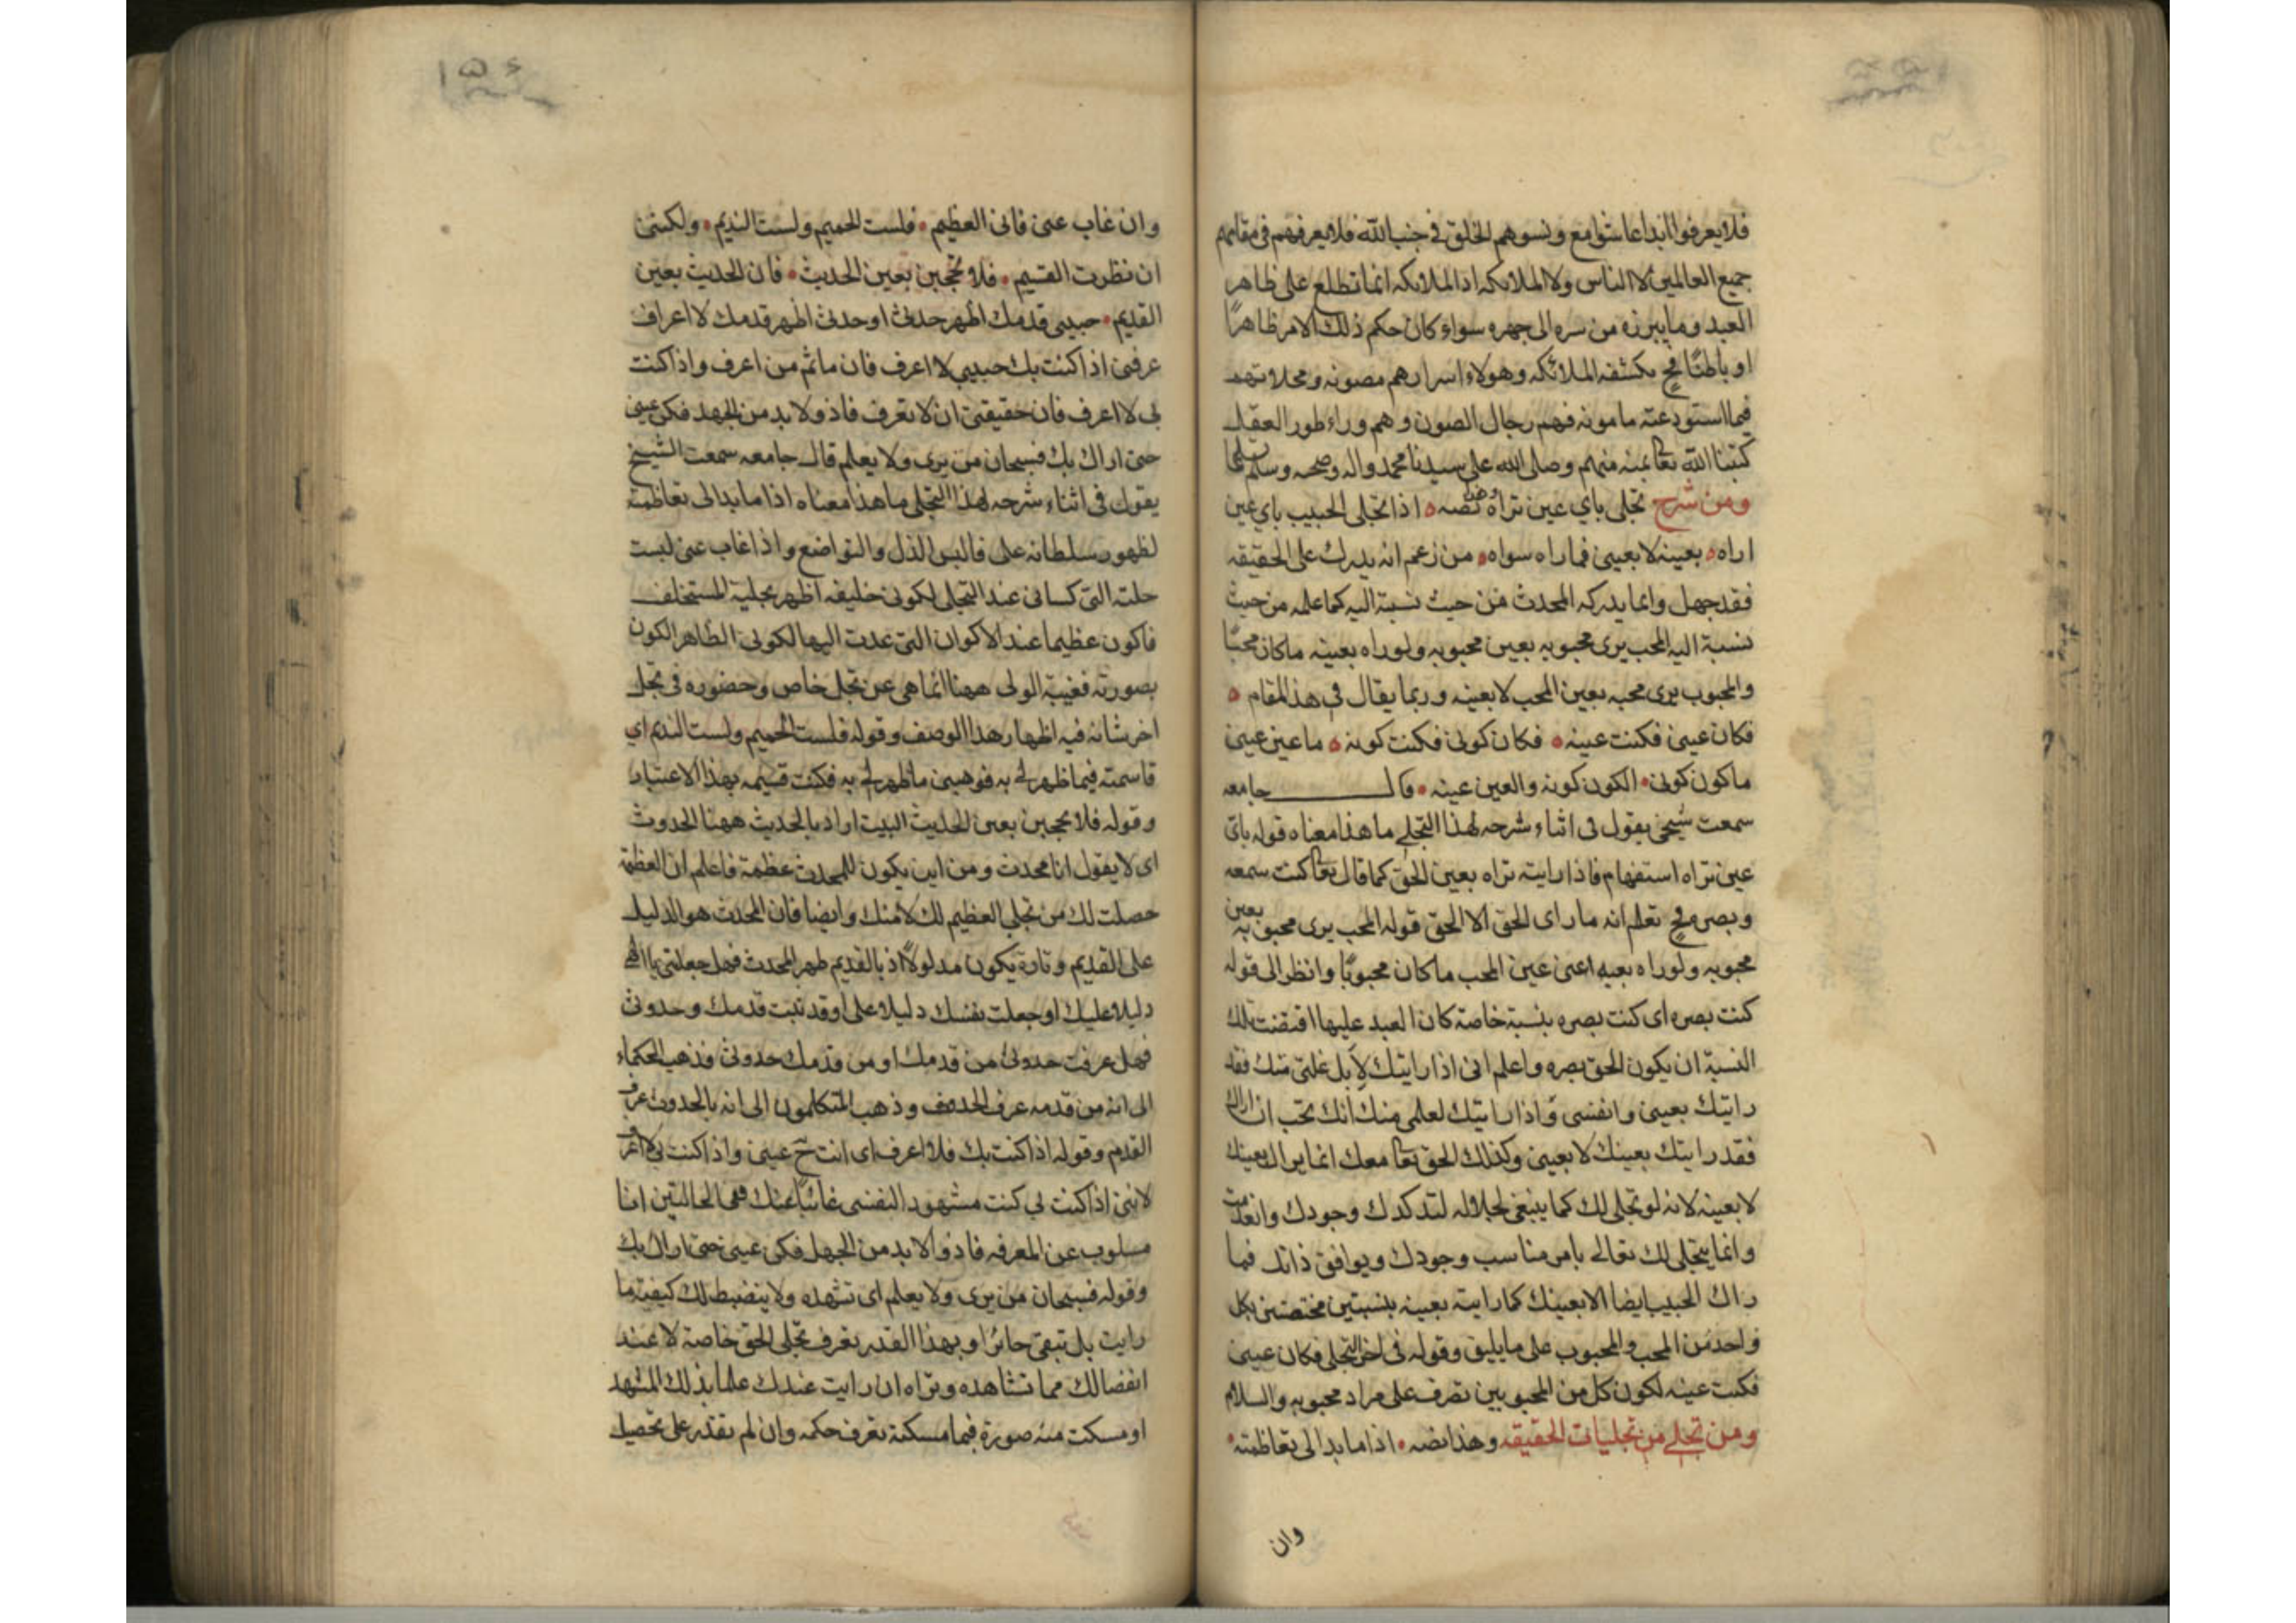 فلا يعرفوا ابدا عاشوا مع ونسوهم الخلق في جنب الله فلا يعرفهم في مقامهم
جميع العالمين لا الناس ولا الملائكه اذ الملائكه انما تطلع على ظاهر
العبد وما يبرزه من سره الى جهره سواء كان حكم ذلك الامر ظاهرًا
او باطنًا فح يكشفه الملائكه وهولاء اسرارهم مصونه ومحلاتهم
فيما استودعته مامونه فهم رجال الصون وهم وراء طور العقل
كتبنا الله تعا بمنه منهم وصلى الله على سيدنا محمد واله وصحبه وسلم
ومن شرح تجلى باي عين تراه ونصه اذا تجلى الحبيب باي عين
اراه بعينه لا بعيني فما راه سواه من زعم انه يدرك على الحقيقه
فقد جهل وانما يدركه المحدث من حيث نسبته اليه كما علمه من حيث
نسبة اليه المحب يرى محبوبه بعين محبوبه ولو راه بعينه ما كان محبًا
والمحبوب يرى محبه بعين المحب لا بعينه وربما يقال في هذا المقام
فكان عيني فكنت عينه فكان كوني فكنت كونه ما عين عيني
ما كون كوني الكون كونه والعين عينه قال جامعه
سمعت شيخي يقول في اثناء شرحه لهذا التجلي ما هذا معناه قوله باي
عين تراه استفهام فاذا رايته تراه بعين الحق كما قال تعا كنت سمعه
وبصره فح تعلم انه ما راى الحق الا الحق قوله المحب يرى محبوبه بعين
محبوبه ولو راه بعينه اعنى عين المحب ما كان محبوبًا وانظر الى قوله
كنت بصره اى كنت بصره بنسبة خاصة كان العبد عليها اقتضت تلك
النسبة ان يكون الحق بصره واعلم انى اذا رايتك لا بل غلتي منك فقد
رايتك بعيني وانفسى واذا رايتك لعلمى منك انك تحب ان اراك
فقد رايتك بعينك لا بعيني وكذلك الحق تعا معك انما يراك بعينك
لا بعينه لانه لو تجلى لك كما ينبغى لجلاله لتدكدك وجودك وانعدمت
وانما يتجلى لك تعالى بامر مناسب وجودك ويوافق ذاتك فما
راك الحبيب ايضا الا بعينك كما رايته بعينه بنسبتين مختصتين بكل
واحد من المحب والمحبوب على ما يليق وقوله في اخر التجلى فكان عيني
فكنت عينه لكون كل من المحبوبين تصرف على مراد محبوبه والسلام
ومن تجلي من تجليات الحقيقه وهذا نصه اذا ما بدا لى تعاظمته
وان
وان غاب عنى فانى العظيم فلست الحميم ولست النديم ولكننى
ان نظرت القسيم فلا تحجبن بعين الحديث فان الحديث بعين
القديم حبيبى قدمك اظهر حدثى او حدثى اظهر قدمك لا اعراف
عرفنى اذا كنت بك حبيبى لا اعرف فان ما ثم من اعرف واذا كنت
بى لا اعرف فان حقيقتى ان لا تعرف فاذ ولا بد من الجهد فكن عينى
حتى اراك بك فسبحان من يرى ولا يعلم قال جامعه سمعت الشيخ
يقول فى اثناء شرحه لهذا التجلى ما هذا معناه اذا ما بدا لى تعاظمته
لظهور سلطانه على فالبس الذل والتواضع واذا غاب عنى لبست
حلته التى كسانى عند التجلى لكونى خليفه اظهر بحلية المستخلف
فاكون عظيما عند الاكوان التى عدت اليها لكونى الظاهر الكون
بصورته فغيبة الولى ههنا انما هى عن تجل خاص وحضوره فى تجل
اخر شانه فيه اظهار هذا الوصف وقوله فلست الحميم ولست النديم اى
قاسمته فيما ظهر لى به فوهبنى ما ظهر لى به فكنت قسيمه بهذا الاعتبار
وقوله فلا تحجبن بعين الحديث البيت اراد بالحديث ههنا الحدوث
اى لا يقول انا محدث ومن اين يكون للمحدث عظمة فاعلم ان العظمة
حصلت لك من تجلى العظيم لك لا منك وايضا فان المحدث هو الدليل
على القديم وتارة يكون مدلولاً اذ بالقديم ظهر المحدث فهل جعلتنى يا الهى
دليلا عليك او جعلت نفسك دليلا على او قد ثبت قدمك وحدوثى
فهل عرفت حدوثى من قدمك او من قدمك حدوثى فذهب الحكماء
الى انه من قدمه عرف الحدوث وذهب المتكلمون الى انه بالحدوث عرف
القدم وقوله اذا كنت بك فلا اعرف اى انت ح عينى واذا كنت بى لا اعرف
لاننى اذا كنت لى كنت مشهود النفسى غائبًا عنك ففى الحالتين انا
مسلوب عن المعرفه فاذ ولا بد من الجهل فكن عينى حتى اراك بك
وقوله فسبحان من يرى ولا يعلم اى تشهده ولا ينضبط لك كيفية ما
رايت بل تبقى حائرا وبهذا القدر تعرف تجلى الحق خاصة لا عند
انفصالك مما تشاهده وتراه ان رايت عندك علما بذلك المشهد
او مسكت منه صورة فيما مسكته تعرف حكمه وان لم تقدر على تحصيل